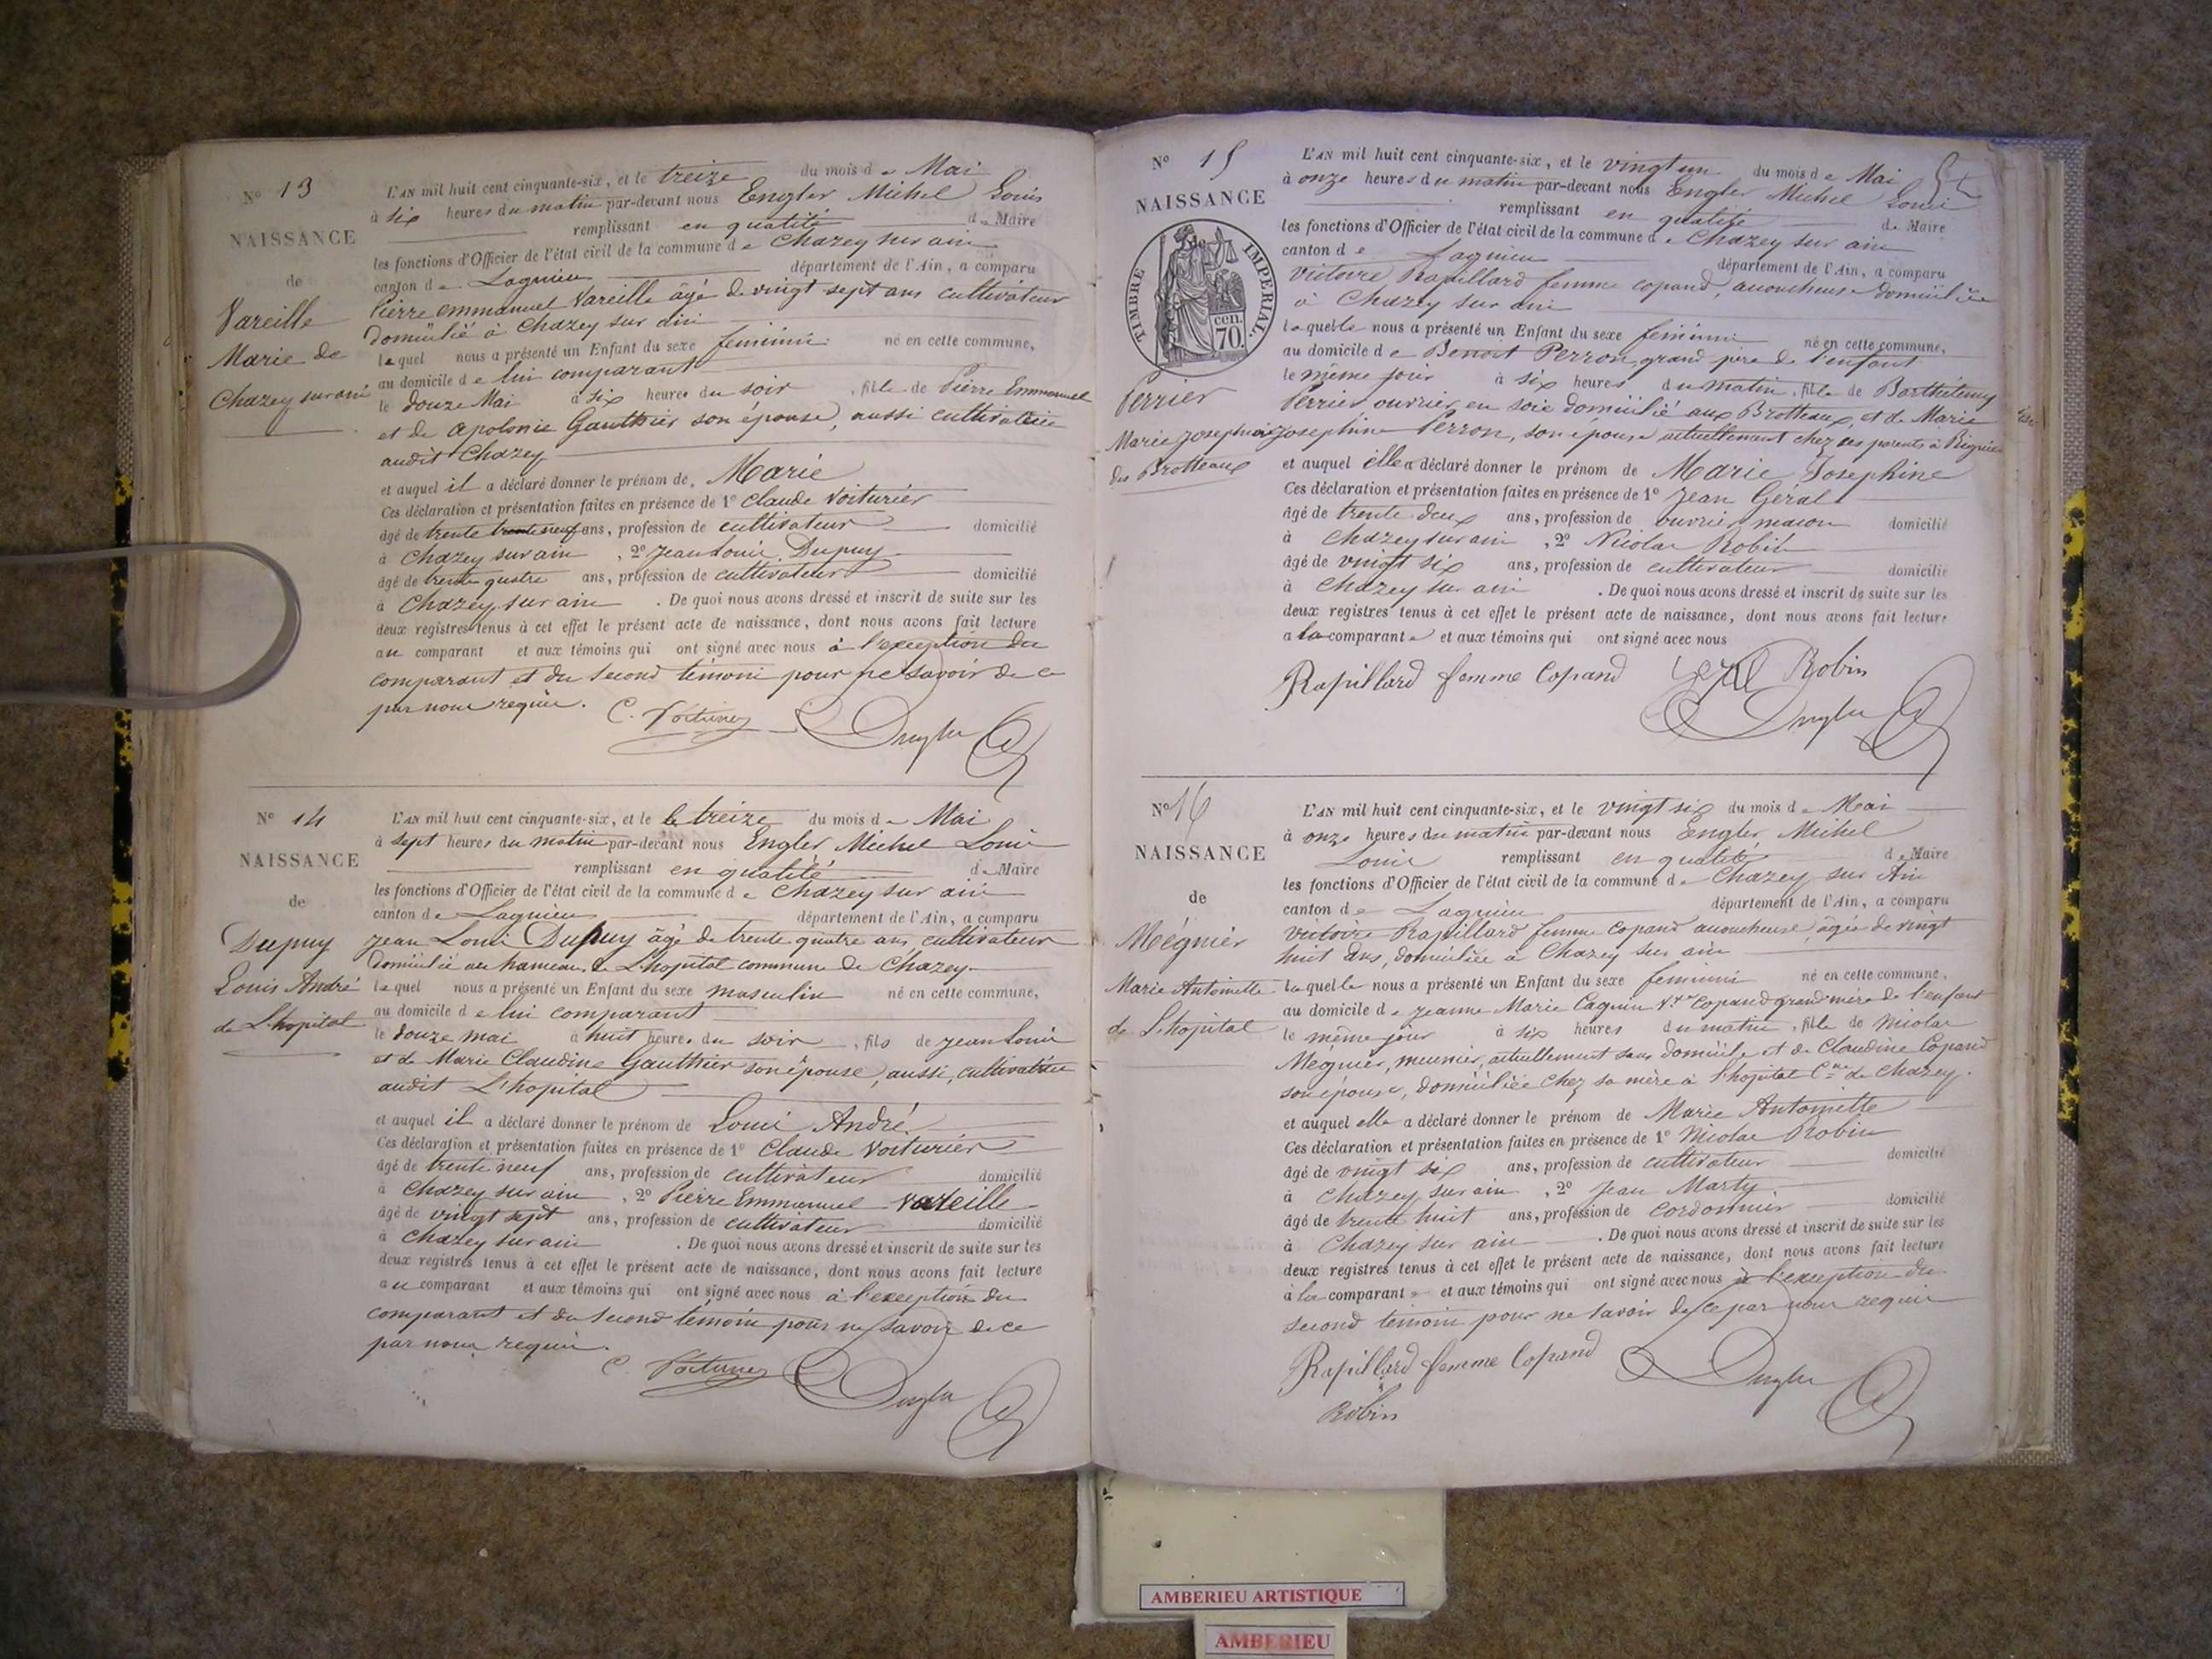 N° 13
NAISSANCE
de
Vareille
Marie de
Chazey sur ain
L'AN mil huit cent cinquante-six, et le treize du mois de Mai
à six heures du matin par-devant nous Engler Michel Louis
remplissant en qualité de Maire
les fonctions d'Officier de l'état civil de la commune de Chazey sur ain
canton de Lagnieu département de l'Ain, a comparu
Pierre emmanuel Vareille âgé de vingt sept ans cultivateur
domicilié à Chazey sur ain
lequel nous a présenté un Enfant du sexe feminin né en cette commune,
au domicile de lui comparant
le douze Mai à six heures du soir, fille de Pierre Emmanuel
et de Apolonie Gauthier son épouse, aussi cultivatrice
audit Chazey
et auquel il a déclaré donner le prénom de Marie
Ces déclaration et présentation faites en présence de 1° Claude Voiturier
âgé de trente trente neuf ans, profession de cultivateur domicilié
à Chazey sur ain, 2° Jean Louis Dupuy
âgé de trente quatre ans, profession de cultivateur domicilié
à Chazey sur ain. De quoi nous avons dressé et inscrit de suite sur les
deux registres tenus à cet effet le présent acte de naissance, dont nous avons fait lecture
au comparant et aux témoins qui ont signé avec nous à l'exception du
comparant et du second témoin pour ne savoir de ce
par nous requis.
C. Voiturier Engler
N° 14
NAISSANCE
de
Dupuy
Louis André
de L'hopital
L'AN mil huit cent cinquante-six, et le le treize du mois de Mai
à sept heures du matin par-devant nous Engler Michel Louis
remplissant en qualité de Maire
les fonctions d'Officier de l'état civil de la commune de Chazey sur ain
canton de Lagnieu département de l'Ain, a comparu
Jean Louis Dupuy âgé de trente quatre ans cultivateur
domicilié au hameau de L'hopital commune de Chazey
lequel nous a présenté un Enfant du sexe masculin né en cette commune,
au domicile de lui comparant
le douze mai à huit heures du soir, fils de Jean Louis
et de Marie Claudine Gauthier son épouse, aussi, cultivatrice
audit L'hopital
et auquel il a déclaré donner le prénom de Louis André
Ces déclaration et présentation faites en présence de 1° Claude Voiturier
âgé de trente neuf ans, profession de cultivateur domicilié
à Chazey sur ain, 2° Pierre Emmanuel Vareille
âgé de vingt sept ans, profession de cultivateur domicilié
à Chazey sur ain. De quoi nous avons dressé et inscrit de suite sur les
deux registres tenus à cet effet le présent acte de naissance, dont nous avons fait lecture
au comparant et aux témoins qui ont signé avec nous à l'exception du
comparant et du second témoin pour ne savoir de ce
par nous requis.
C. Voiturier Engler
N° 15
NAISSANCE
TIMBRE IMPERIAL.
cen. 70.
Perrier
Marie Josephine
des Brotteaux
L'AN mil huit cent cinquante-six, et le vingt un du mois de Mai
à onze heures du matin par-devant nous Engler Michel Louis
remplissant en qualité de Maire
les fonctions d'Officier de l'état civil de la commune de Chazey sur ain
canton de Lagnieu département de l'Ain, a comparu
Victoire Rapillard femme copand, accoucheuse domiciliée
à Chazey sur ain
laquelle nous a présenté un Enfant du sexe feminin né en cette commune,
au domicile de Benoit Perron, grand père de l'enfant
le même jour à six heures du matin, fille de Barthélemy
Perrier ouvrier en soie domicilié aux Brotteaux, et de Marie
Josephine Perron, son épouse actuellement chez ses parents à
et auquel elle a déclaré donner le prénom de Marie Josephine
Ces déclaration et présentation faites en présence de 1° Jean Géral
âgé de trente deux ans, profession de ouvrier macon domicilié
à Chazey sur ain, 2° Nicolas Robin
âgé de vingt six ans, profession de cultivateur domicilié
à Chazey sur ain. De quoi nous avons dressé et inscrit de suite sur les
deux registres tenus à cet effet le présent acte de naissance, dont nous avons fait lecture
a la comparante et aux témoins qui ont signé avec nous
Rapillard femme Copand Géral Robin
Engler
N° 16
NAISSANCE
de
Mégnier
Marie Antoinette
de L'hopital
L'AN mil huit cent cinquante-six, et le vingt six du mois de Mai
à onze heures du matin par-devant nous Engler Michel
Louis remplissant en qualité de Maire
les fonctions d'Officier de l'état civil de la commune de Chazey sur Ain
canton de Lagnieu département de l'Ain, a comparu
Victoire Rapillard femme Copand accoucheuse, âgée de vingt
huit ans, domiciliée à Chazey sur ain
laquelle nous a présenté un Enfant du sexe feminin né en cette commune,
au domicile de Jeanne Marie Cagnin Vve Copand grand'mère de l'enfant
le même jour à six heures du matin, fille de Nicolas
Mégnier, meunier, actuellement sans domicile et de Claudine Copand
son épouse, domiciliée chez sa mère à l'hopital Cne de Chazey.
et auquel elle a déclaré donner le prénom de Marie Antoinette
Ces déclaration et présentation faites en présence de 1° Nicolas Robin
âgé de vingt six ans, profession de cultivateur domicilié
à Chazey sur ain, 2° Jean Marty
âgé de trente huit ans, profession de cordonnier domicilié
à Chazey sur ain. De quoi nous avons dressé et inscrit de suite sur les
deux registres tenus à cet effet le présent acte de naissance, dont nous avons fait lecture
à la comparante et aux témoins qui ont signé avec nous à l'exception du
second témoin pour ne savoir de ce par nous requis
Rapillard femme Copand Engler
Robin
AMBERIEU ARTISTIQUE
AMBERIEU